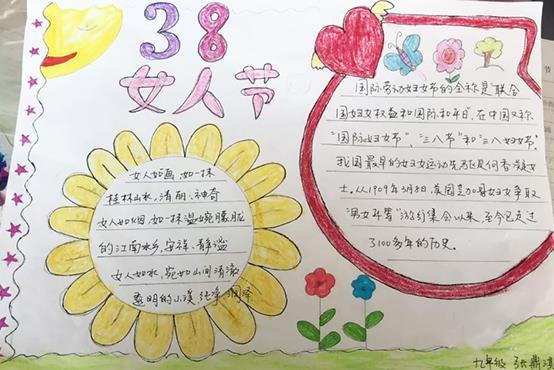 38
女人节
女人如画,如一抹
桂林山水,清丽、神奇
女人如烟,如一抹温婉朦胧
的江南水乡,安祥、静谧
女人如水,宛如山间清澈
透明的小溪,纯净、润泽
国际劳动妇女节的全称是"联合
国妇女权益和国际和平日",在中国又称
"国际妇女节"、"三八节"和"三八妇女节".
我国最早的妇女运动先驱是何香凝女
士.从1909年3月8日,美国芝加哥妇女争取
"男女平等"游行集会以来,至今已走过
了100多年的历史.
九年级 张鼎